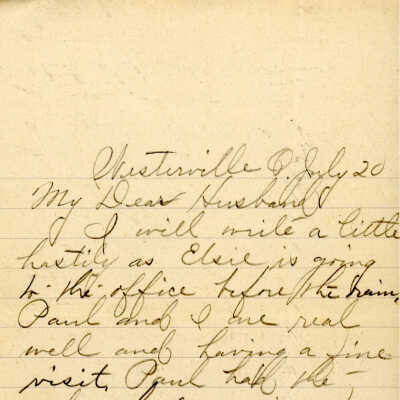 Westerville O. July 20
My Dear Husband
I will write a little
hastily as Elsie is going
to the office before the train,
Paul and I are real
well and having a fine
visit, Paul had the